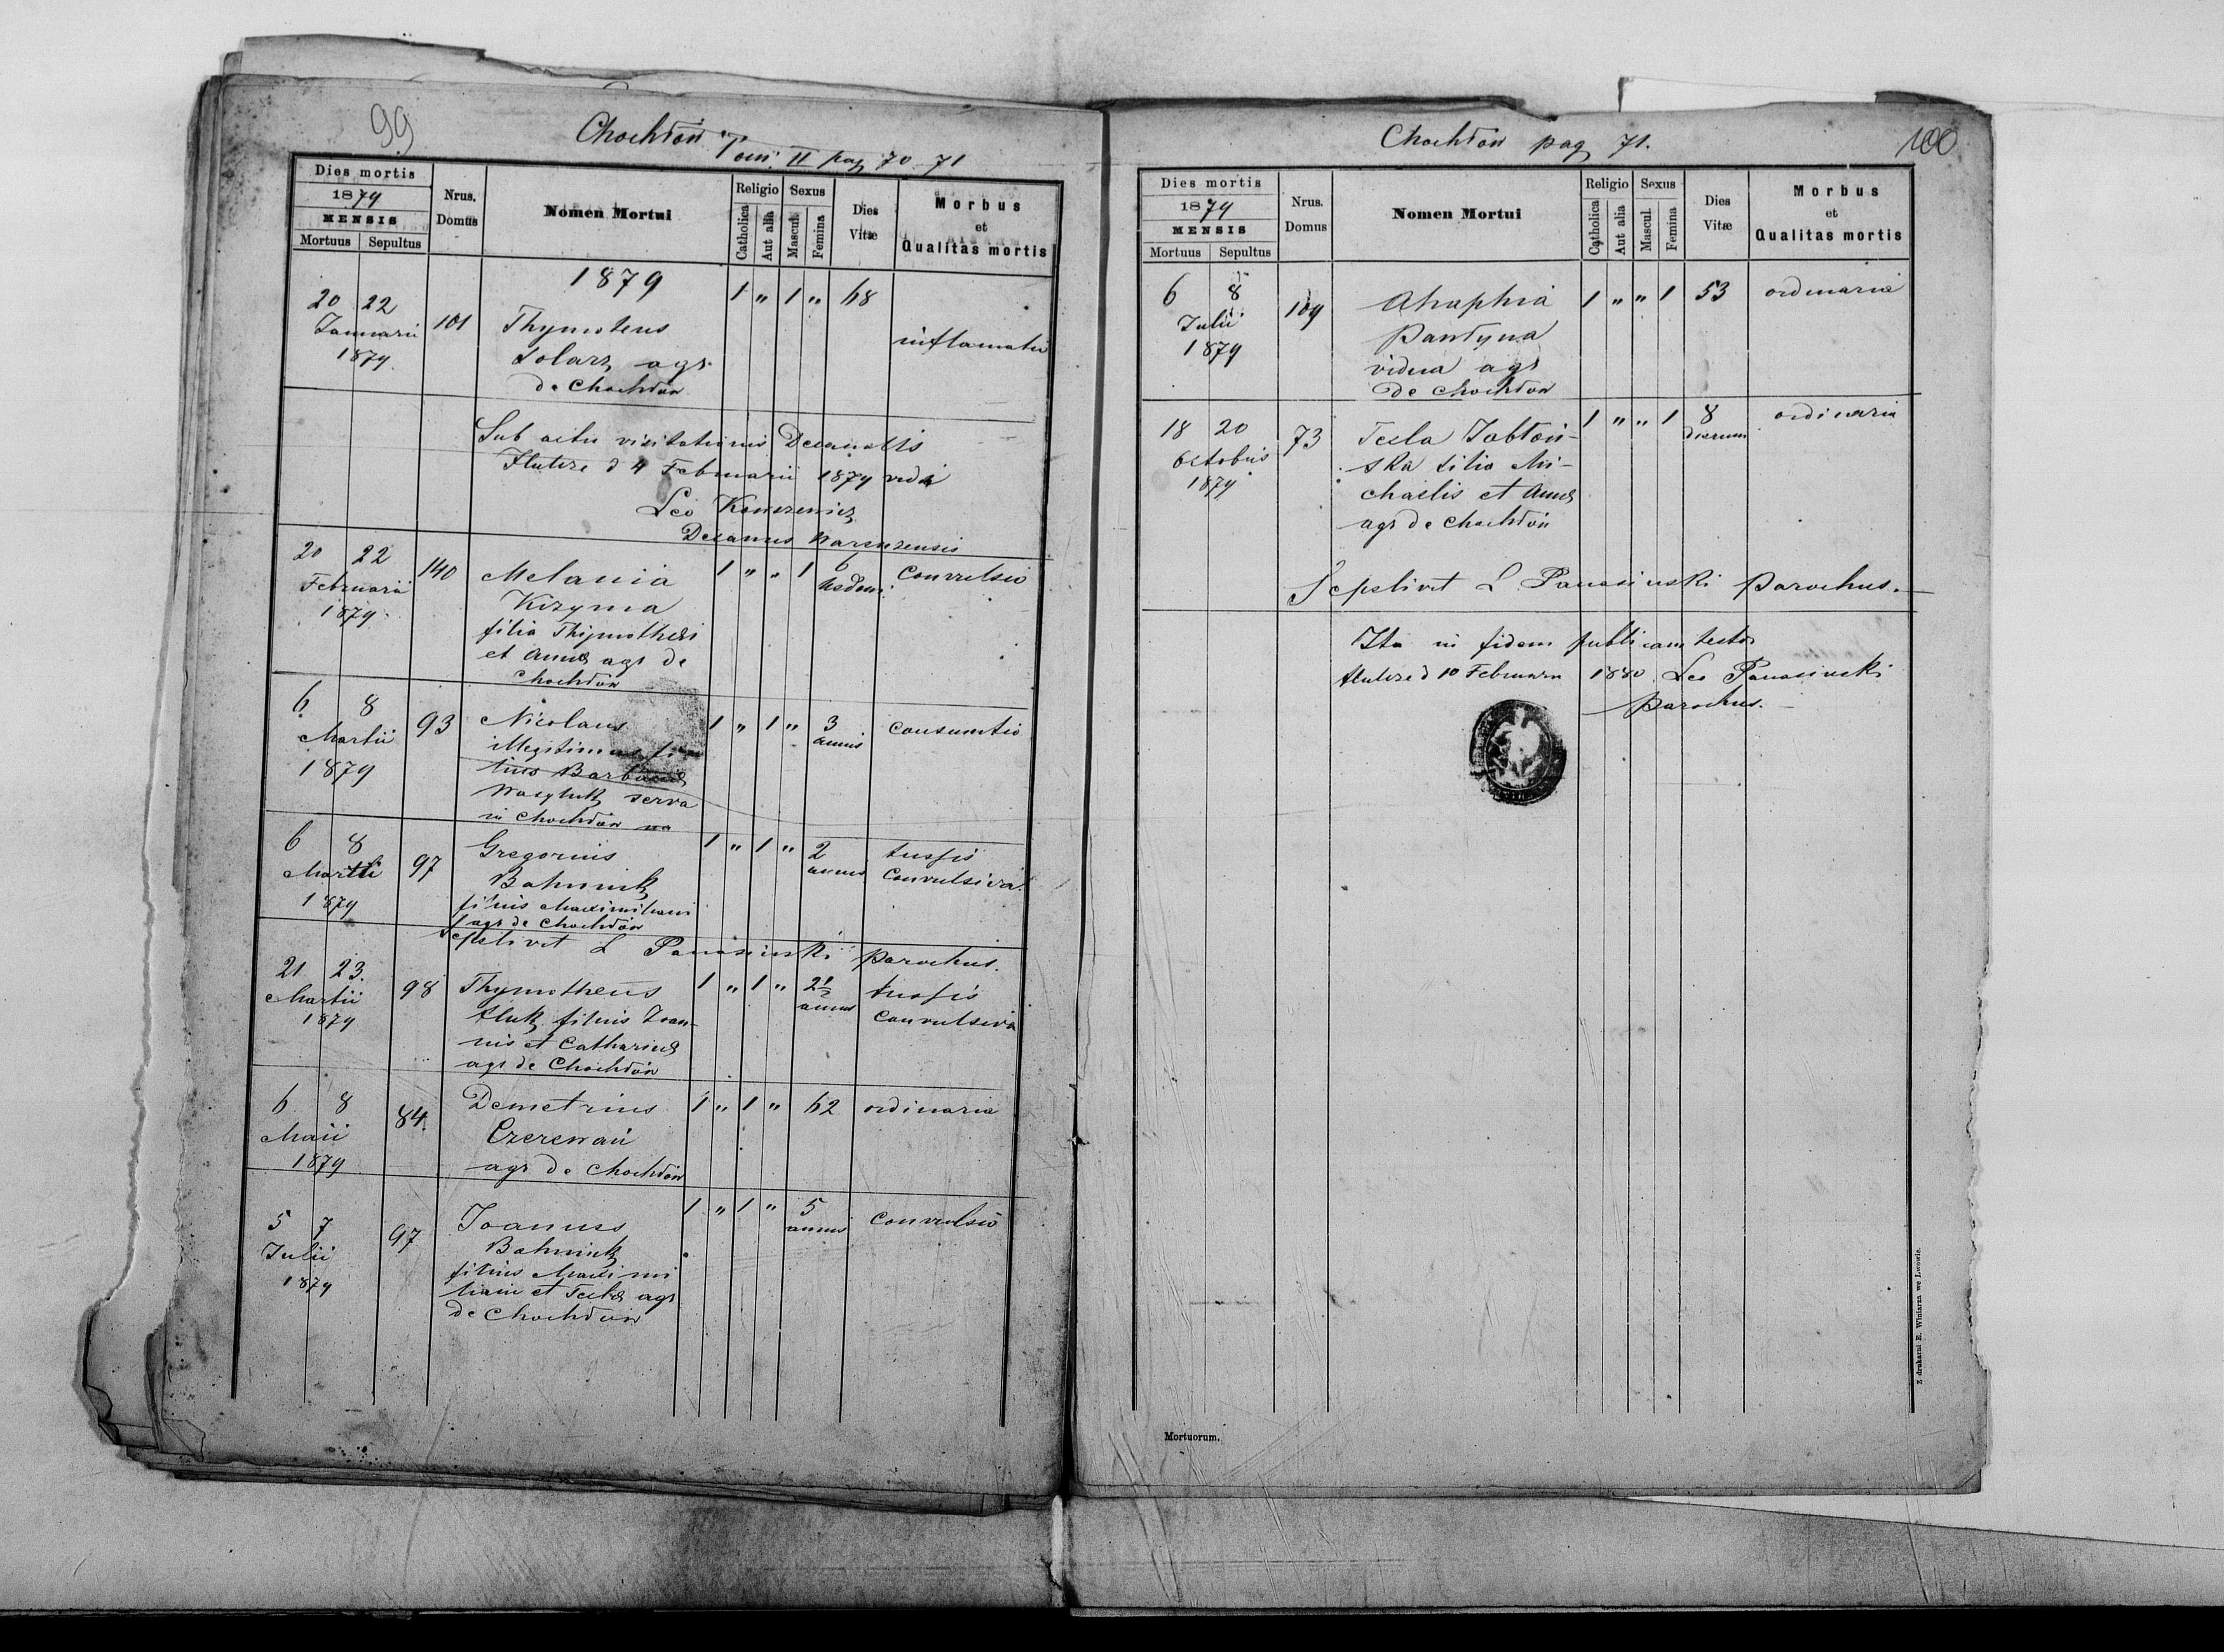 99
Chochłón Tom II pag 70 71
Dies mortis
1879
MENSIS
Mortuus Sepultus
Nrus. Domus
Nomen Mortui
Religio
Catholica
Aut alia
Sexus
Mascul.
Femina
Dies Vitæ
Morbus
et
Qualitas mortis
1879
20 22 101 Thymoteus 1 " 1 " 68 inflamatio
Januarii Solarz agr
1879 de Chochłón
Sub actu visitationis Decanalis
Hlutze d 4 Februarii 1879 vidi
Leo
Decanus
20 22 140 Melania 1 " " 1 6 convulsio
Februarii Kizyma hebdom.
1879 filia Thijmothei
et Annæ agr de
Chochłón
6 8 93 Nicolaus 1 " 1 " 3 consumtio
Martii illegitimus fi- annis
1879 lius Barbaræ
Wasyluk serva
in Chochłón
6 8 97 Gregorius 1 " 1 " 2 tussis
Martii Bahniuk annus convulsiva
1879 filius Maximiliani
agr de Chochłón
Sepelivit L Panasinski parochus.
21 23 98 Thymotheus 1 " 1 " 2½ tussis
Martii filius Ioan- annus convulsiva
1879 nis et Catharinæ
agr de Chochłón
6 8 84 Demetrius 1 " 1 " 62 ordinaria
Maii Czerewań
1879 agr de Chochłón
5 7 97 Joannes 1 " 1 " 5 convulsio
Julii Bahniuk annis
1879 filius Maximi
liani et Teclæ agr
de Chochłón
Chochłón pag 71.
100
Dies mortis
1879
MENSIS
Mortuus Sepultus
Nrus. Domus
Nomen Mortui
Religio
Catholica
Aut alia
Sexus
Mascul.
Femina
Dies Vitæ
Morbus
et
Qualitas mortis
6 8 109 Ahaphia 1 " " 1 53 ordinaria
Julii
1879 vidua agr
de Chochłón
18 20 73 Tecla Jabłoń- 1 " " 1 8 ordinaria
Octobris ska filia Mi- dierum
1879 chaelis et Annæ
agr de Chochłón
Sepelivit L Panasinski parochus.
Ita in fidem publicam testor
Hlutze d 10 Februarii 1880 Leo Panasinski
parochus.
Mortuorum.
Z drukarni E. Winiarza we Lwowie.